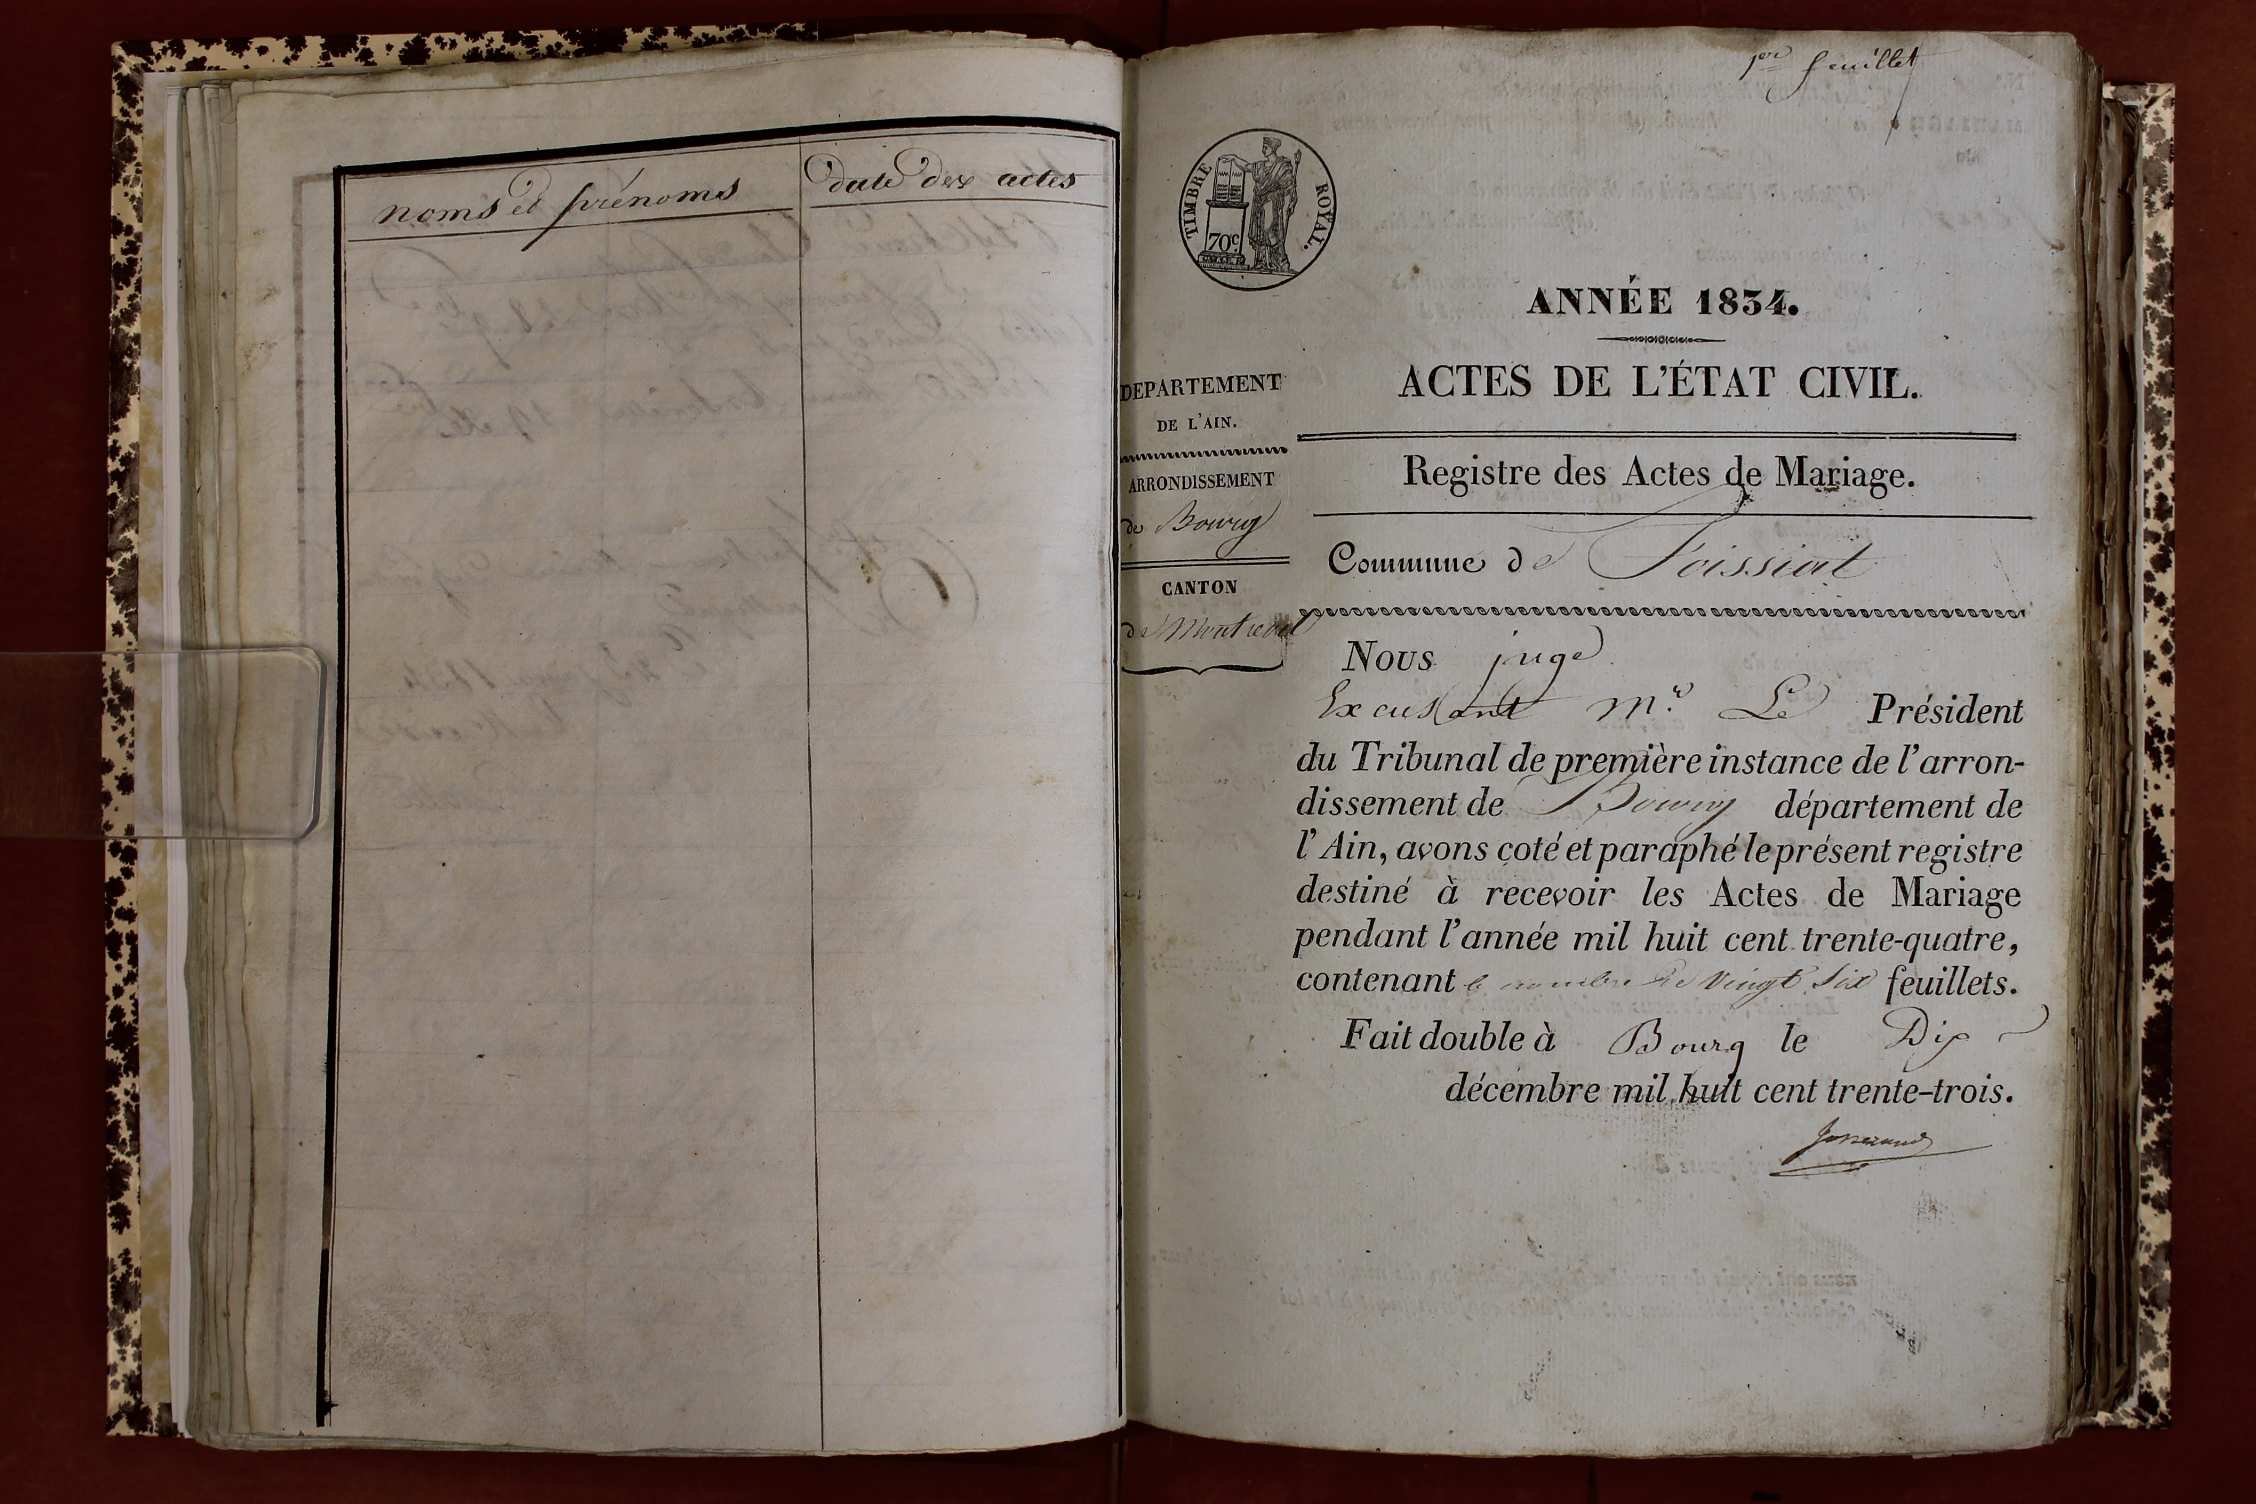 noms et prénoms
date des actes
1er feuillet
TIMBRE ROYAL.
70c.
ANNÉE 1834.
ACTES DE L'ÉTAT CIVIL.
DEPARTEMENT
DE L'AIN.
ARRONDISSEMENT
de Bourg
CANTON
de Montrevel
Registre des Actes de Mariage.
Commune de Foissiat
Nous juge
Excusant Mr. Le Président
du Tribunal de première instance de l'arron-
dissement de Bourg département de
l'Ain, avons coté et paraphé le présent registre
destiné à recevoir les Actes de Mariage
pendant l'année mil huit cent trente-quatre,
contenant le nombre de vingt six feuillets.
Fait double à Bourg le Dix
décembre mil huit cent trente-trois.